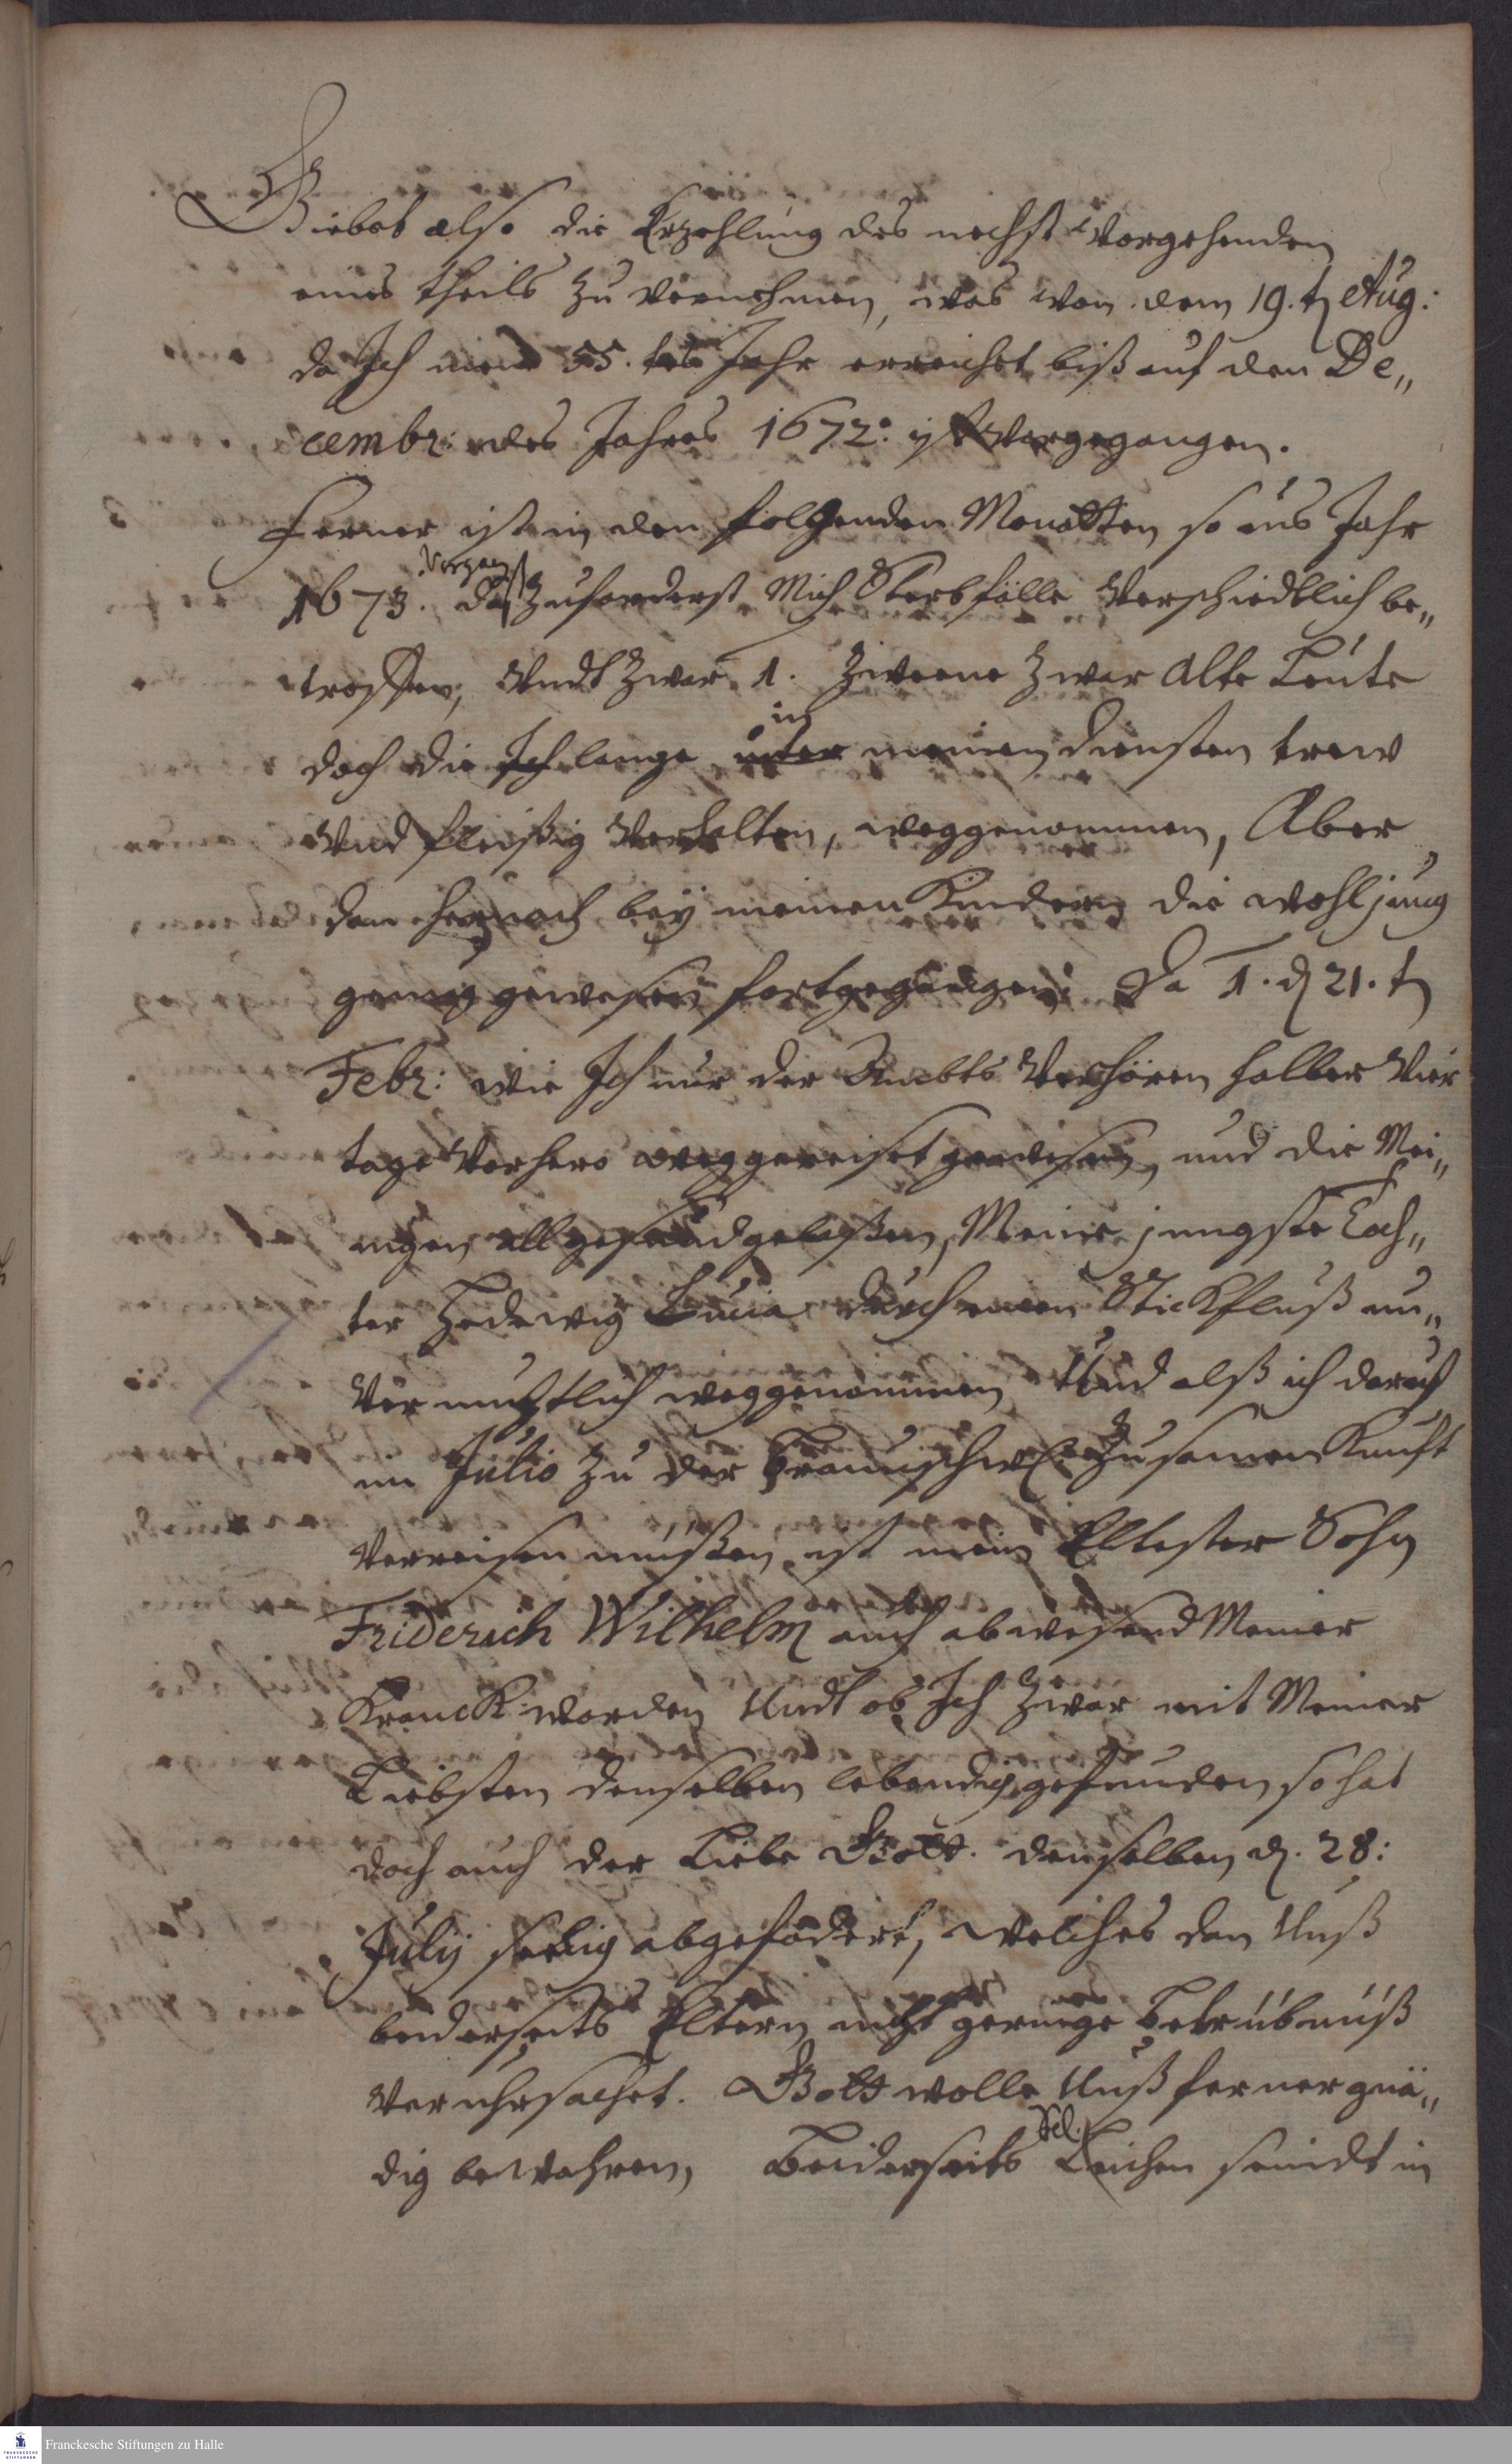 Giebet also die Erzehlung des nechst Vorgehenden
eines theils zu vernehmen, was von dem 19.t Aug:
da Ich mein 55. tes Jahr erreichet biß auf den De„
cembr: des Jahres 1672. ist Vorgegangen.
Ferner ist in den folgenden Monatten so ins Jahr
1673. daß zuforderst Mich Sterbfälle Verschiedtlich be„
troffen, Vndt zwar 1. zweene zwar alte Leute
in
doch die Ich lange unter meinen diensten trew
Vnd fleißig Verhalten, weggenommen, Aber
dan hernach bey meinen Kindern die wohl jung
genug gewesen fortgegangen: Da 1. d 21. t
Febr: wie Ich nur der Ambts Verhören halber Vier
tage Vorhero weggereiset gewesen, und die Mei„
nigen all gesund gelaßen, Meine jungste Toch„
ter Hedewig Lucia durch einen Stickfluß un„
Vermuhtlich weggenommen Und alß ich darauf
im Julio zu der Braunschw: Zusamen Kunft
Verreisen müßen, ist mein Eltester Sohn
Friderich Wilhelm auch abwesend Meiner
Kranck worden Undt ob Ich zwar mit Meiner
Liebsten denselben lebendig gefunden, so hat
doch auch der Liebe Gott denselben d. 28:
Julij seelig abgefodert, welches dan Unß
beiderseits Eltern nicht geringe Betrübnüß
Veruhrsachet. Gott wolle Unß ferner gnä„
Sel.
dig bewahren, Beiderseits Leichen seindt in
Franckesche Stiftungen zu Halle